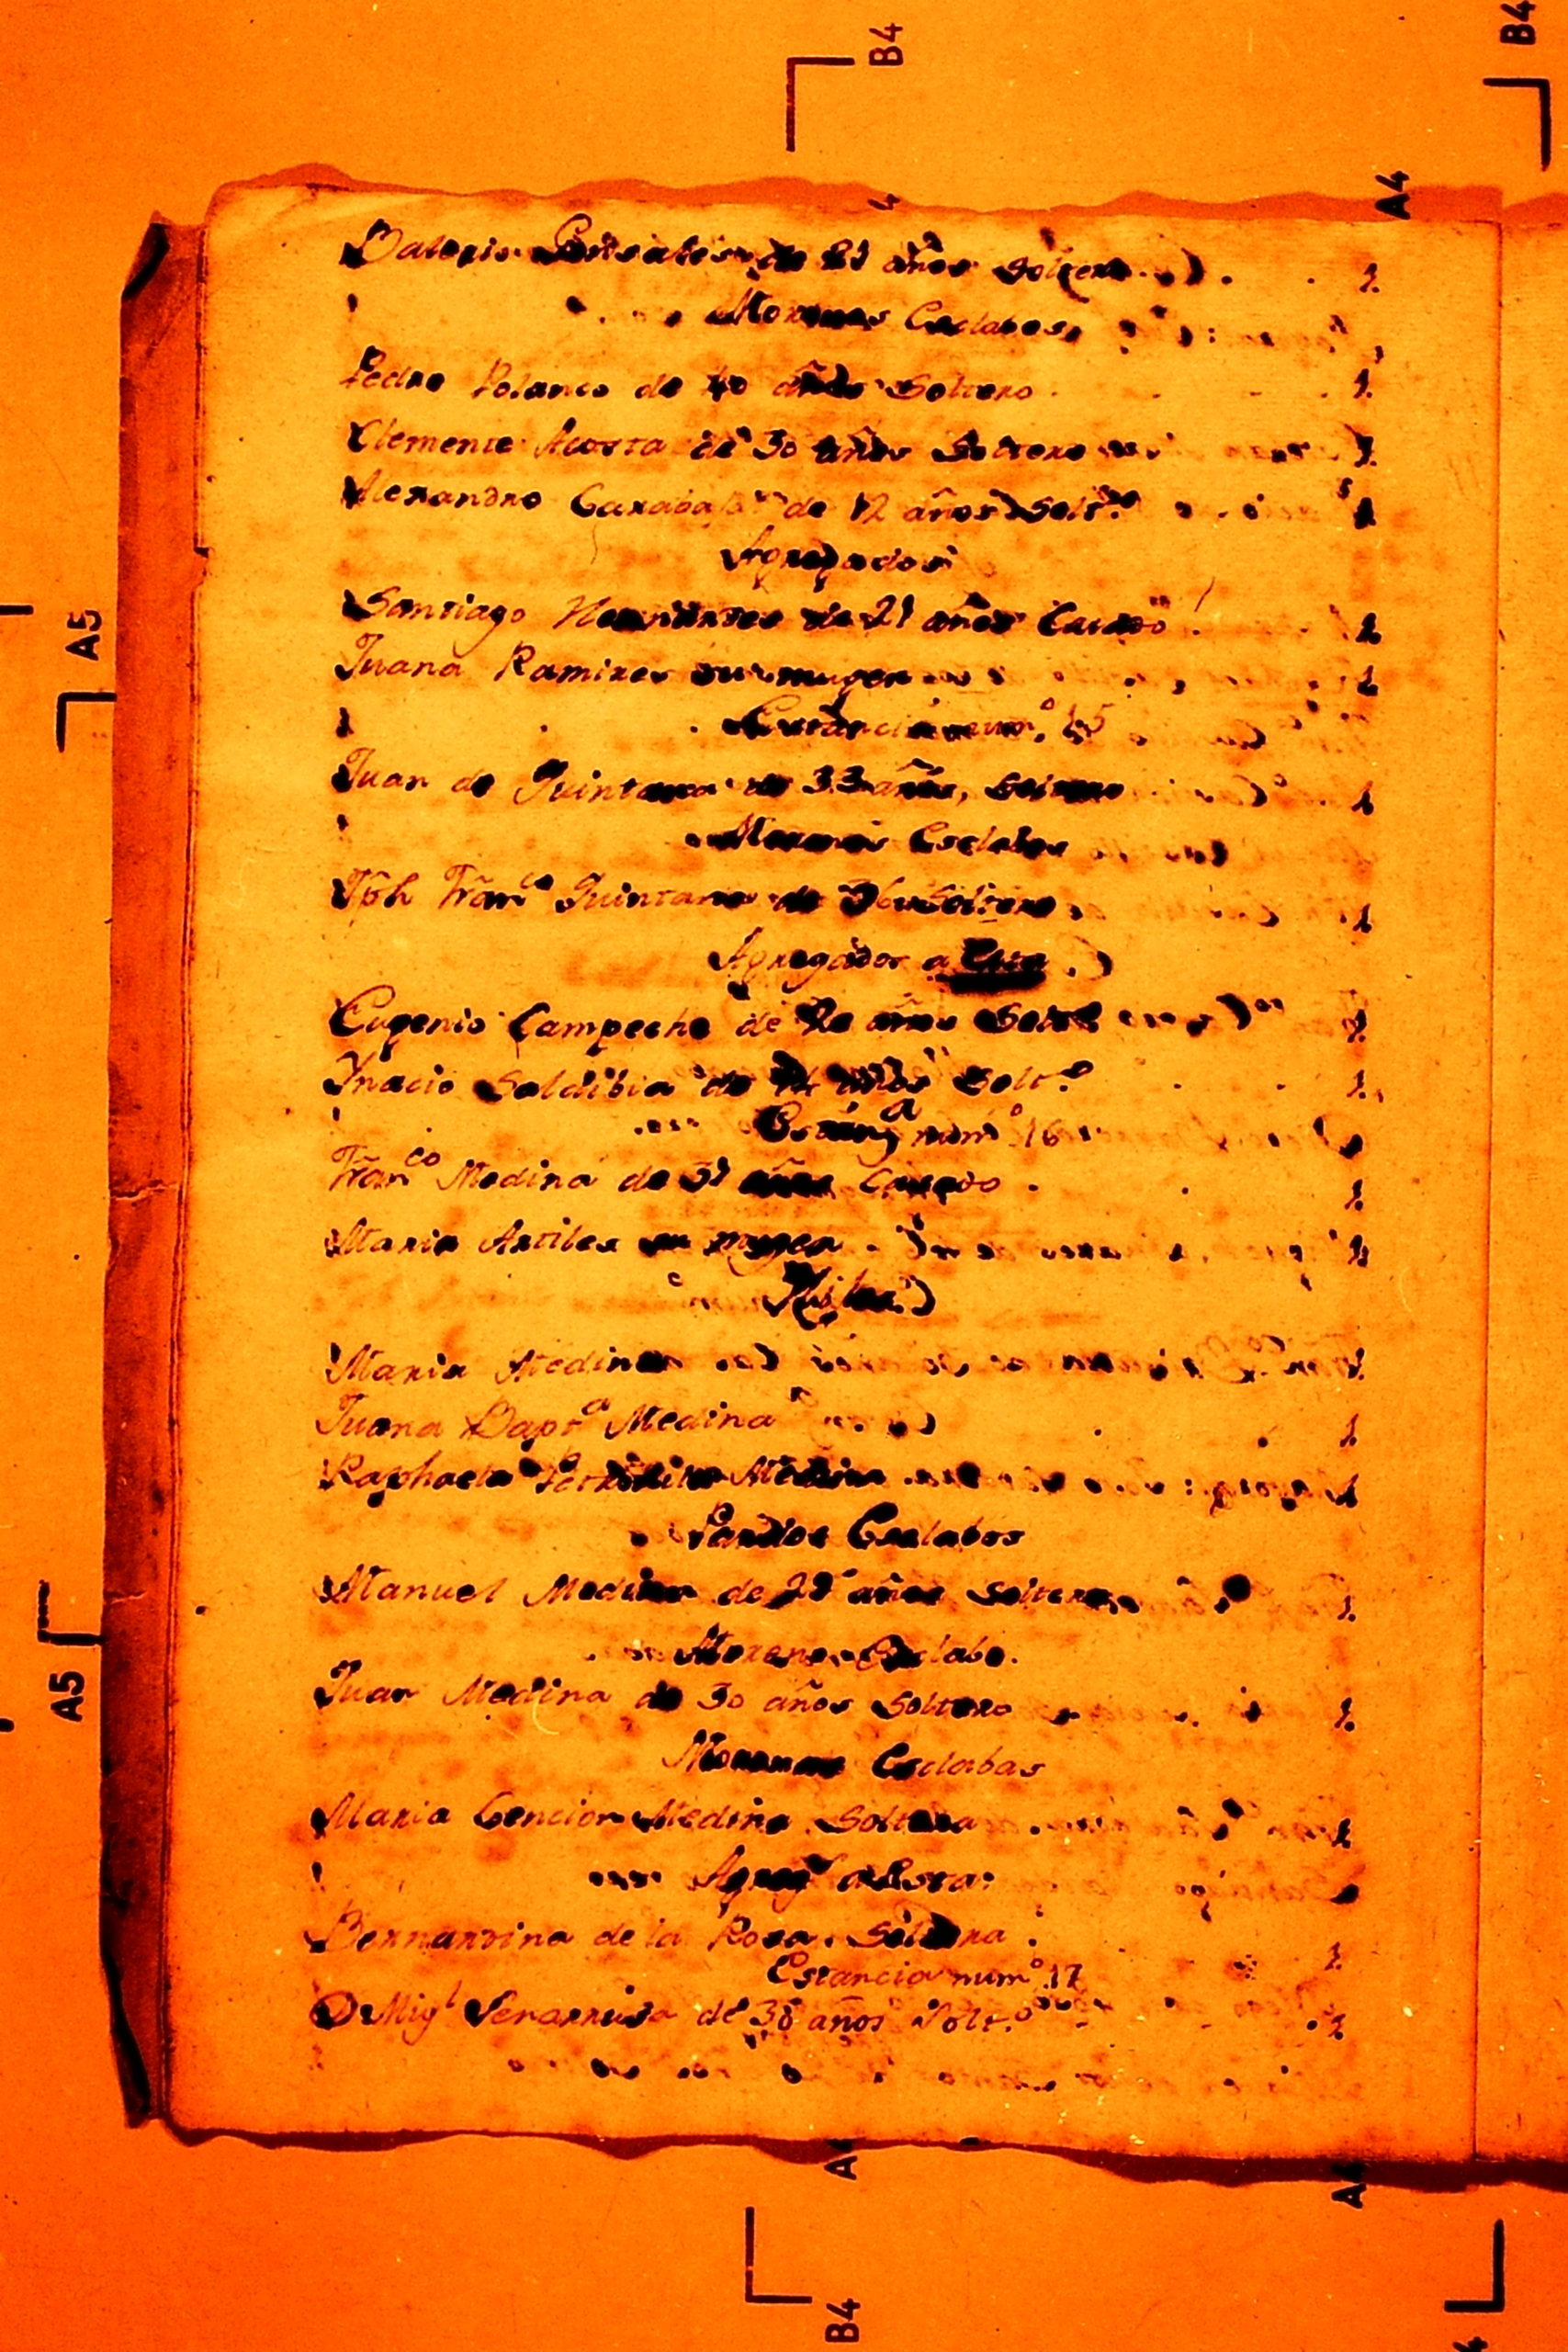 B4
B4
A4
de 21 años Soltero 1.
Morenos Esclabos,
Pedro Polanco de 40 años Soltero 1.
Clemente Acosta de 30 años Soltero 1.
Alexandro de 12 años Solt.º 1
Agregados
Santiago Hernandes de 21 años Casado 1
Juana Ramires su muger 1
Estancia num.º 15
Juan de Quintana de 33 años, Soltero 1
Morenos Esclabos
Jph Franco Quintana de 36 Soltero, 1
Agregados a Esta
Eugenio Campeche de 20 años 1
Ynacio Saldibia de 14 años Solt.º 1.
Estanª numº 16
Franco Medina de 31 años Casado 1.
Maria Artiles su muger 1.
Hijas
Maria Medina 1.
Juana Baptª Medina 1
Raphaela Petronila Medina 1
Pardos Esclabos
Manuel Medina de 29 años Soltero, 1.
Moreno Esclabo.
Juan Medina de 30 años Soltero 1.
Morenas Esclabas
Maria Medina Soltera 1
Agregˢ a Esta
Bernardina de la Rosa Soltera 1.
Estancia numº 17
Dⁿ Migl de 38 años Solt.º 1
A5
A5
B4